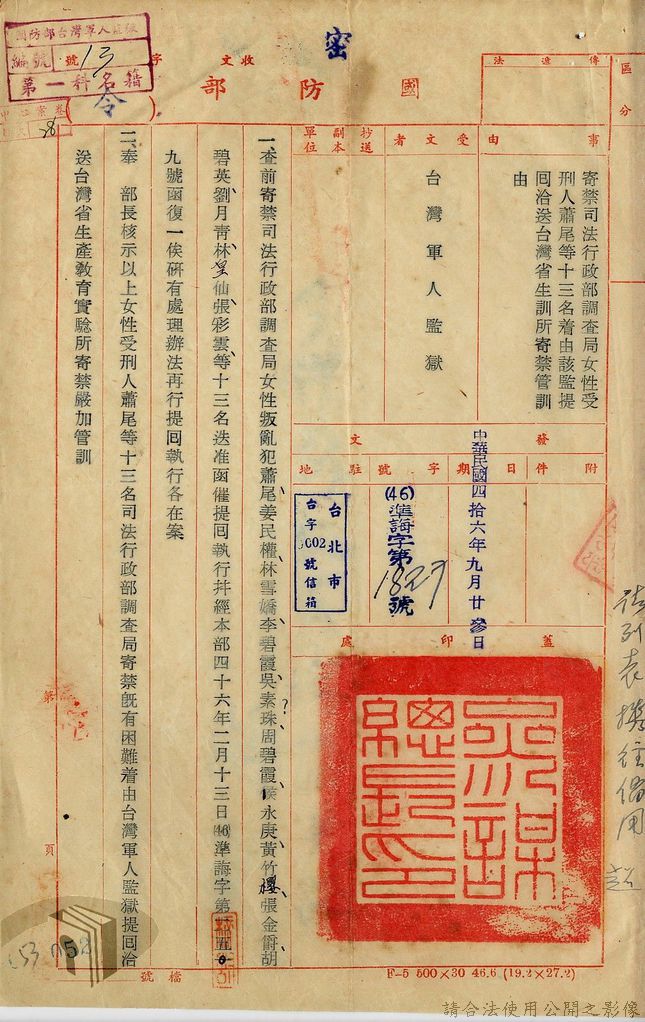 國防部台灣軍人監獄
編號
13號
第一科名籍
收文 字
密
國防部
(令)
28
傳遞法
區分
事由
寄禁司法行政部調查局女性受
刑人蕭尾等十三名着由該監提
囘洽送台灣省生訓所寄禁管訓
由
受文者
台灣軍人監獄
抄送
副本
單位
發文
附件
日期
字號
駐地
中華民國四拾六年九月廿參日
(46)準誨字第1827號
台北市
台字5002號信箱
蓋印處
參謀總長印
一、查前寄禁司法行政部調查局女性叛亂犯蕭尾、姜民權、林雪嬌、李碧霞、吳素珠、周碧霞、侯永庚、黃竹櫻、張金爵、胡
碧英、劉月靑、林星仙、張彩雲、等十三名迭准函催提囘執行并經本部四十六年二月十三日(46)準誨字第廿五
九號函復一俟硏有處理辦法再行提囘執行各在案
二、奉 部長核示以上女性受刑人蕭尾等十三名司法行政部調查局寄禁旣有困難着由台灣軍人監獄提囘洽
送台灣省生產敎育實驗所寄禁嚴加管訓
第
頁
檔號
F-5 500×30 46.6 (19.2×27.2)
請合法使用公開之影像